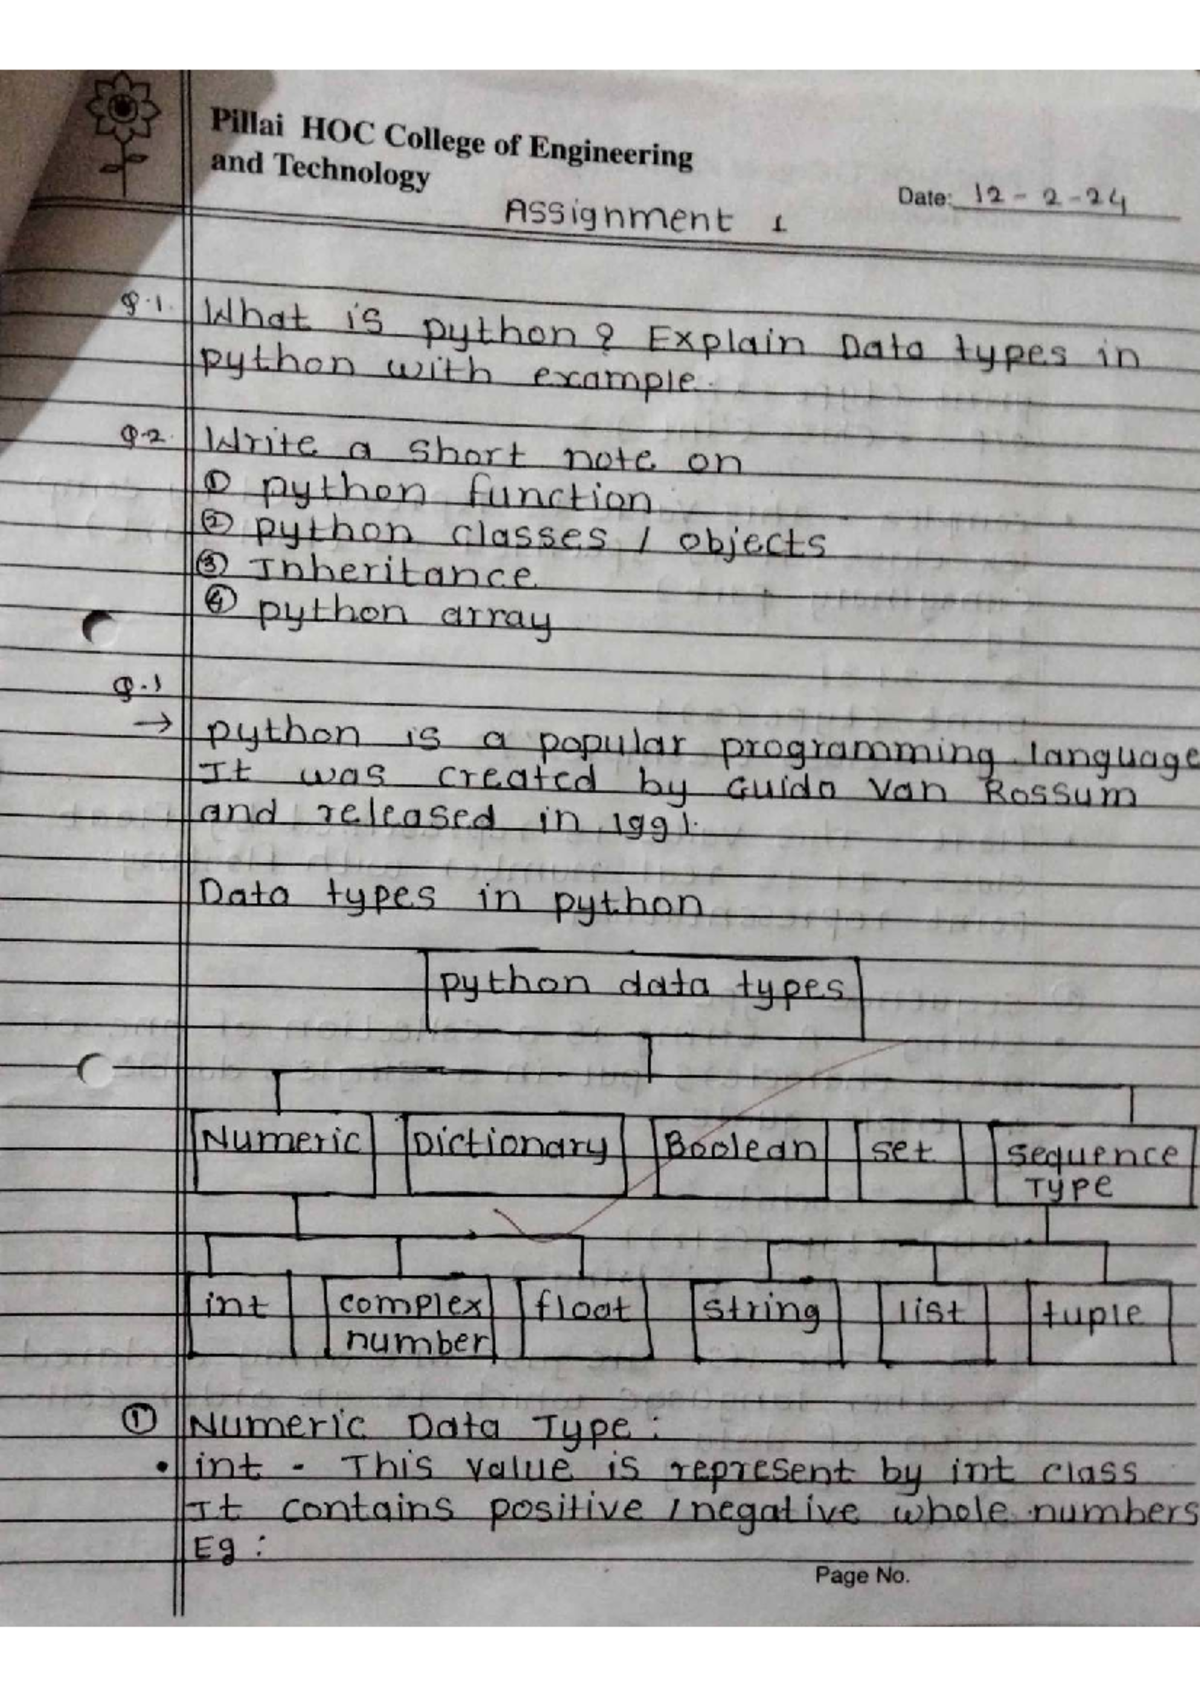 Pillai HOC College of Engineering
and Technology
Date: 12-2-24
Assignment 1
Q.1. What is python? Explain Data types in
python with example.
Q.2. Write a short note on
① python function
② python classes / objects
③ Inheritance
④ python array
Q.1
→ python is a popular programming language
It was created by Guido Van Rossum
and released in 1991.
Data types in python
python data types
Numeric Dictionary Boolean set sequence
Type
int complex float string list tuple
number
① Numeric Data Type:
• int - This value is represent by int class
It contains positive / negative whole numbers
Eg:
Page No.